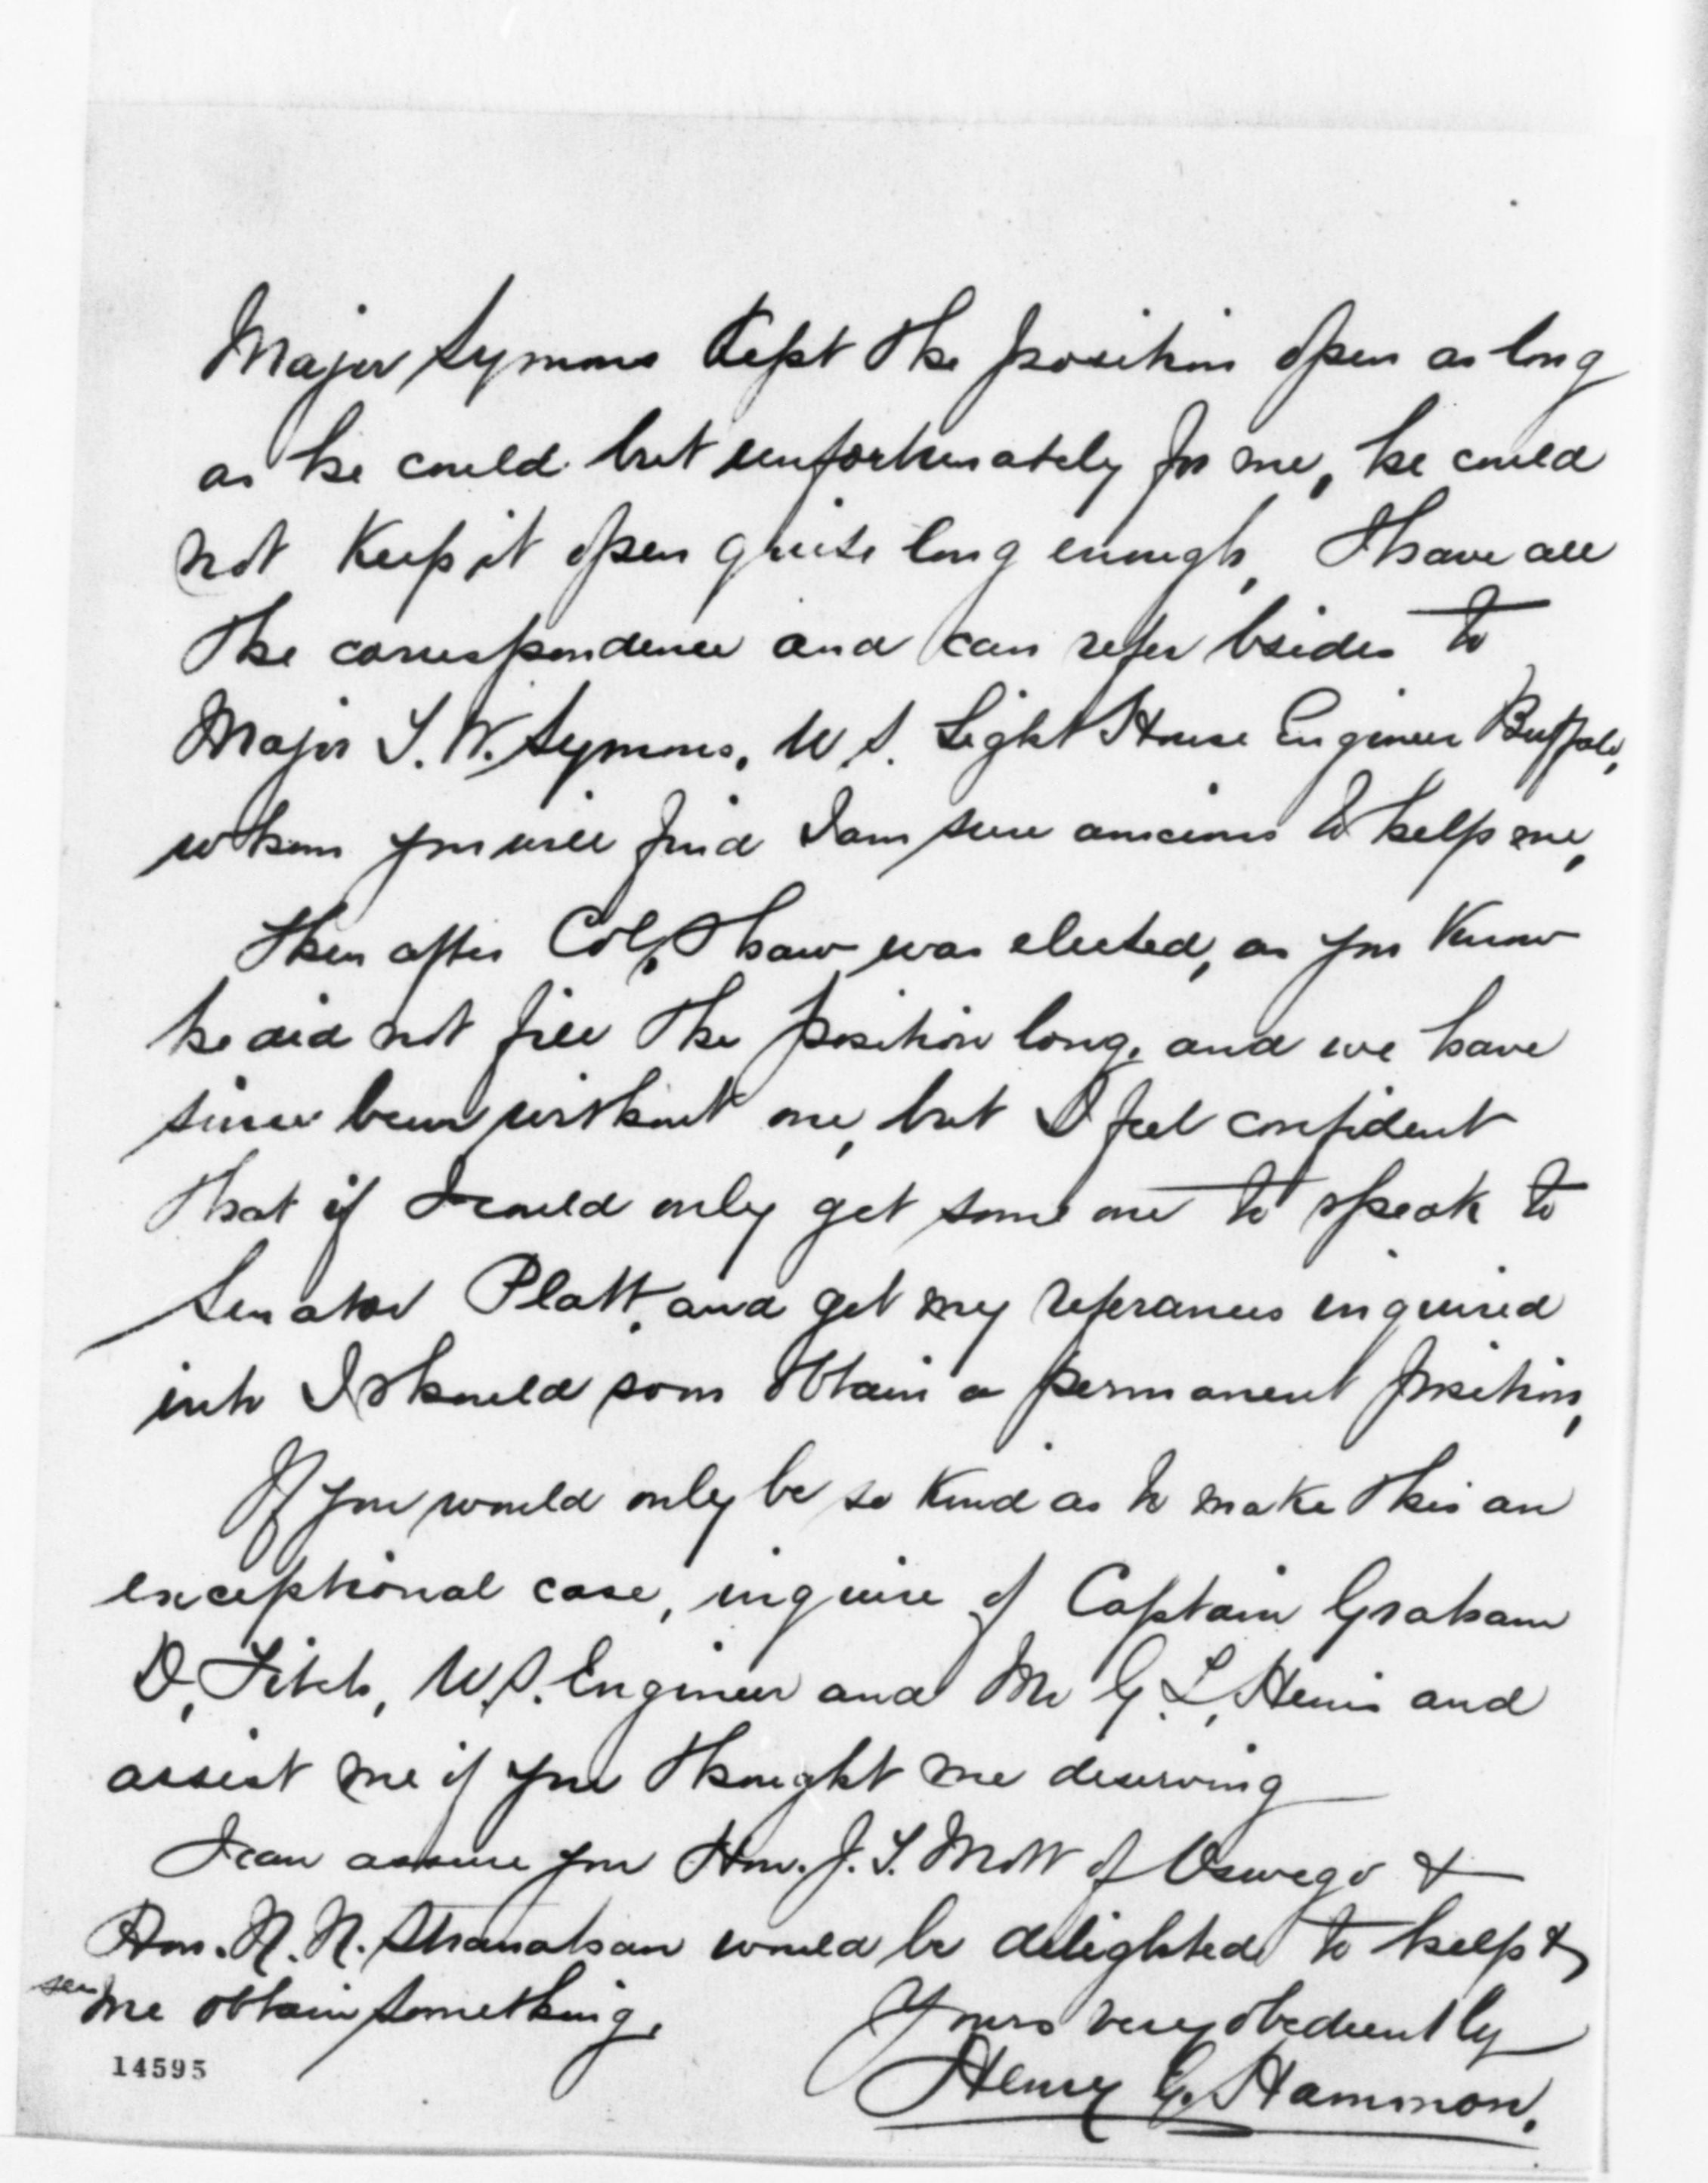 Major Symons Kept the position open as long
as he could but unfortunately for me, he could
not Keep it open quite long enough, I have all
the correspondence and can refer bsides to
Major T. W. Symons, U.S. Light House Engineer Buffalo,
whom you will find I am sure anxious to help me,
Then after Col, Shaw was elected, as you Know
he did not fill the position long, and we have
since been without one, but I feel confident
that if I could only get some one to speak to
Senator Platt, and get my referances inquired
into I should soon obtain a permanent position,
If you would only be so Kind as to make this an
exceptional case, inquire of Captain Graham
D, Fitch, U.S. Engineer and Mr G. L, and
assist me if you thought me deserving
I can assure you Hon. J. T. Mott of Oswego &
Hon. N. N. Stranahan would be delighted to help &
see me obtain something.
Yours very obediently
Henry G. Hammon.
14595